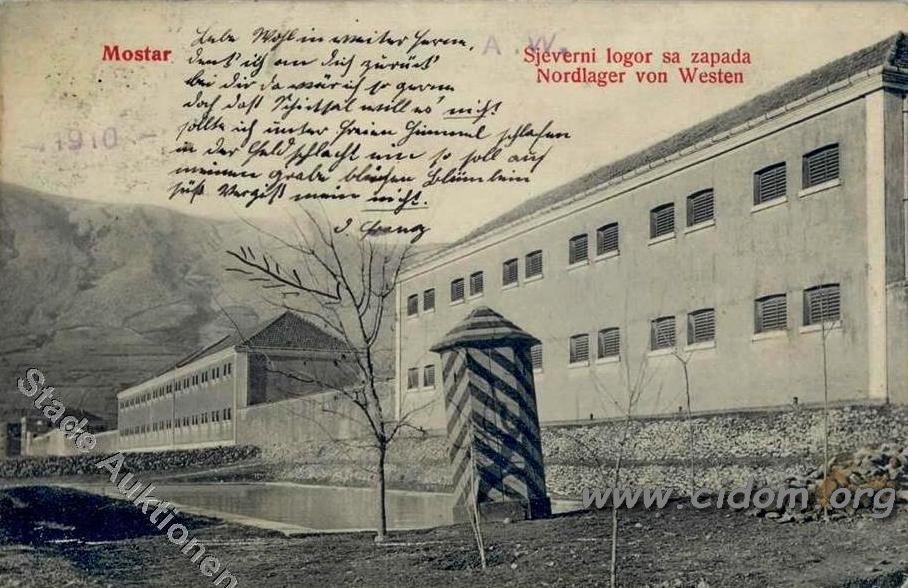 Mostar
Sjeverni logor sa zapada
Nordlager von Westen
A. W.
1910 -
Lebe Wohl in weiter Ferne,
denk ich an dich zurück
bei dir da wär ich so gerne
doch das Schicksal will es nicht
sollte ich unter freien Himmel schlafen
in der Feldschlacht so soll auf
meinen Grabe blühen Blümlein
süß Vergißt mein nicht.
Stade Auktionen
www.cidom.org